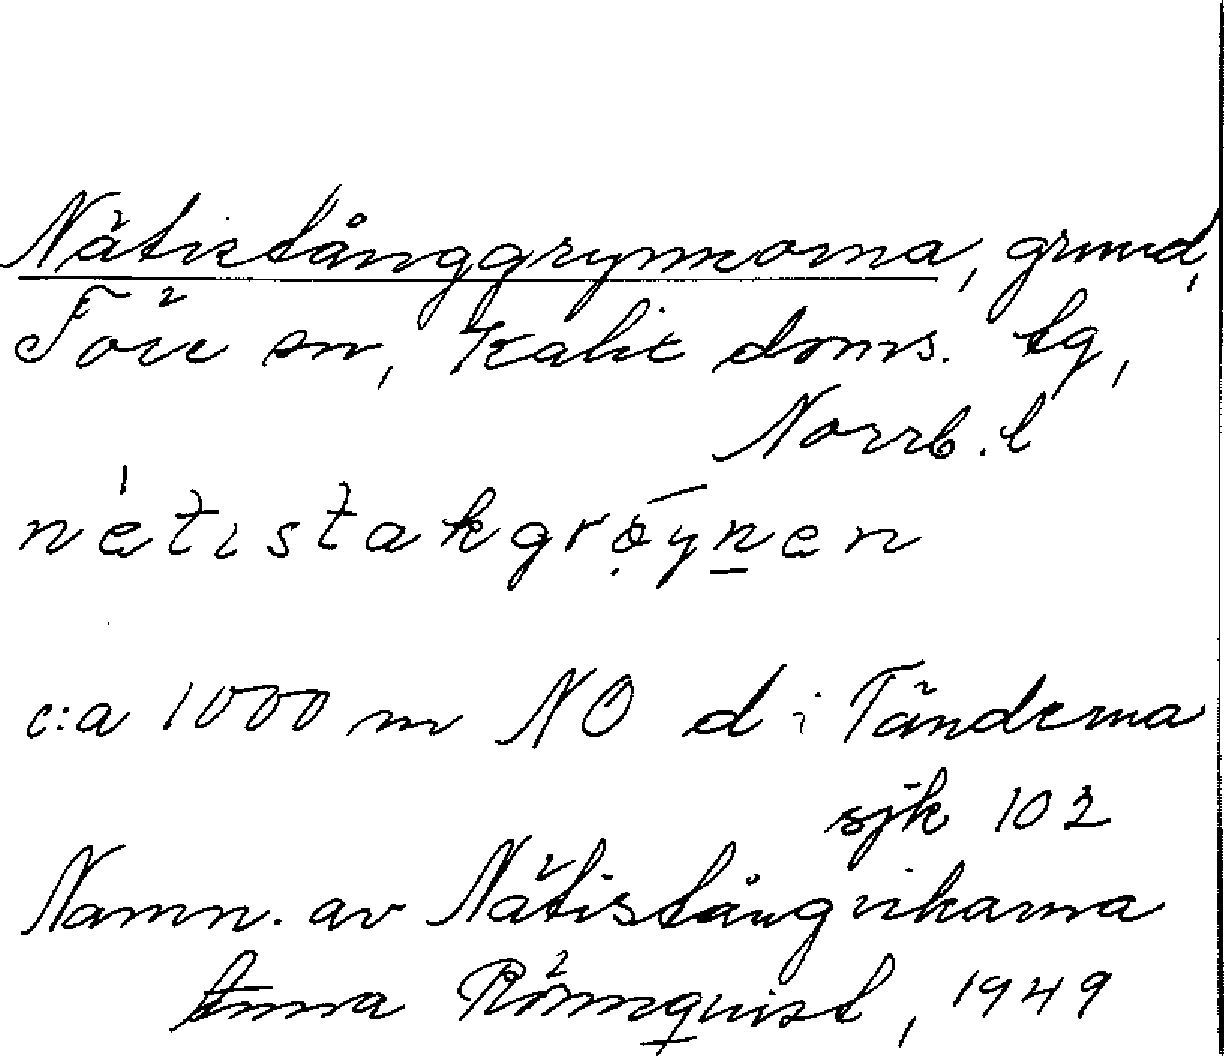 Nätistånggrynnorna, grund,
Töre sn, Kalix doms. tg,
Norrb. l
nètistakgrøynen
c:a 1000 m NO d i Tänderna
sjk 102
Namn. av Nätistångvikarna
Anna Rönnquist, 1949